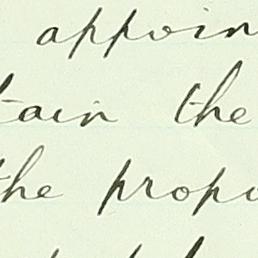 appoin
tain the
the propo